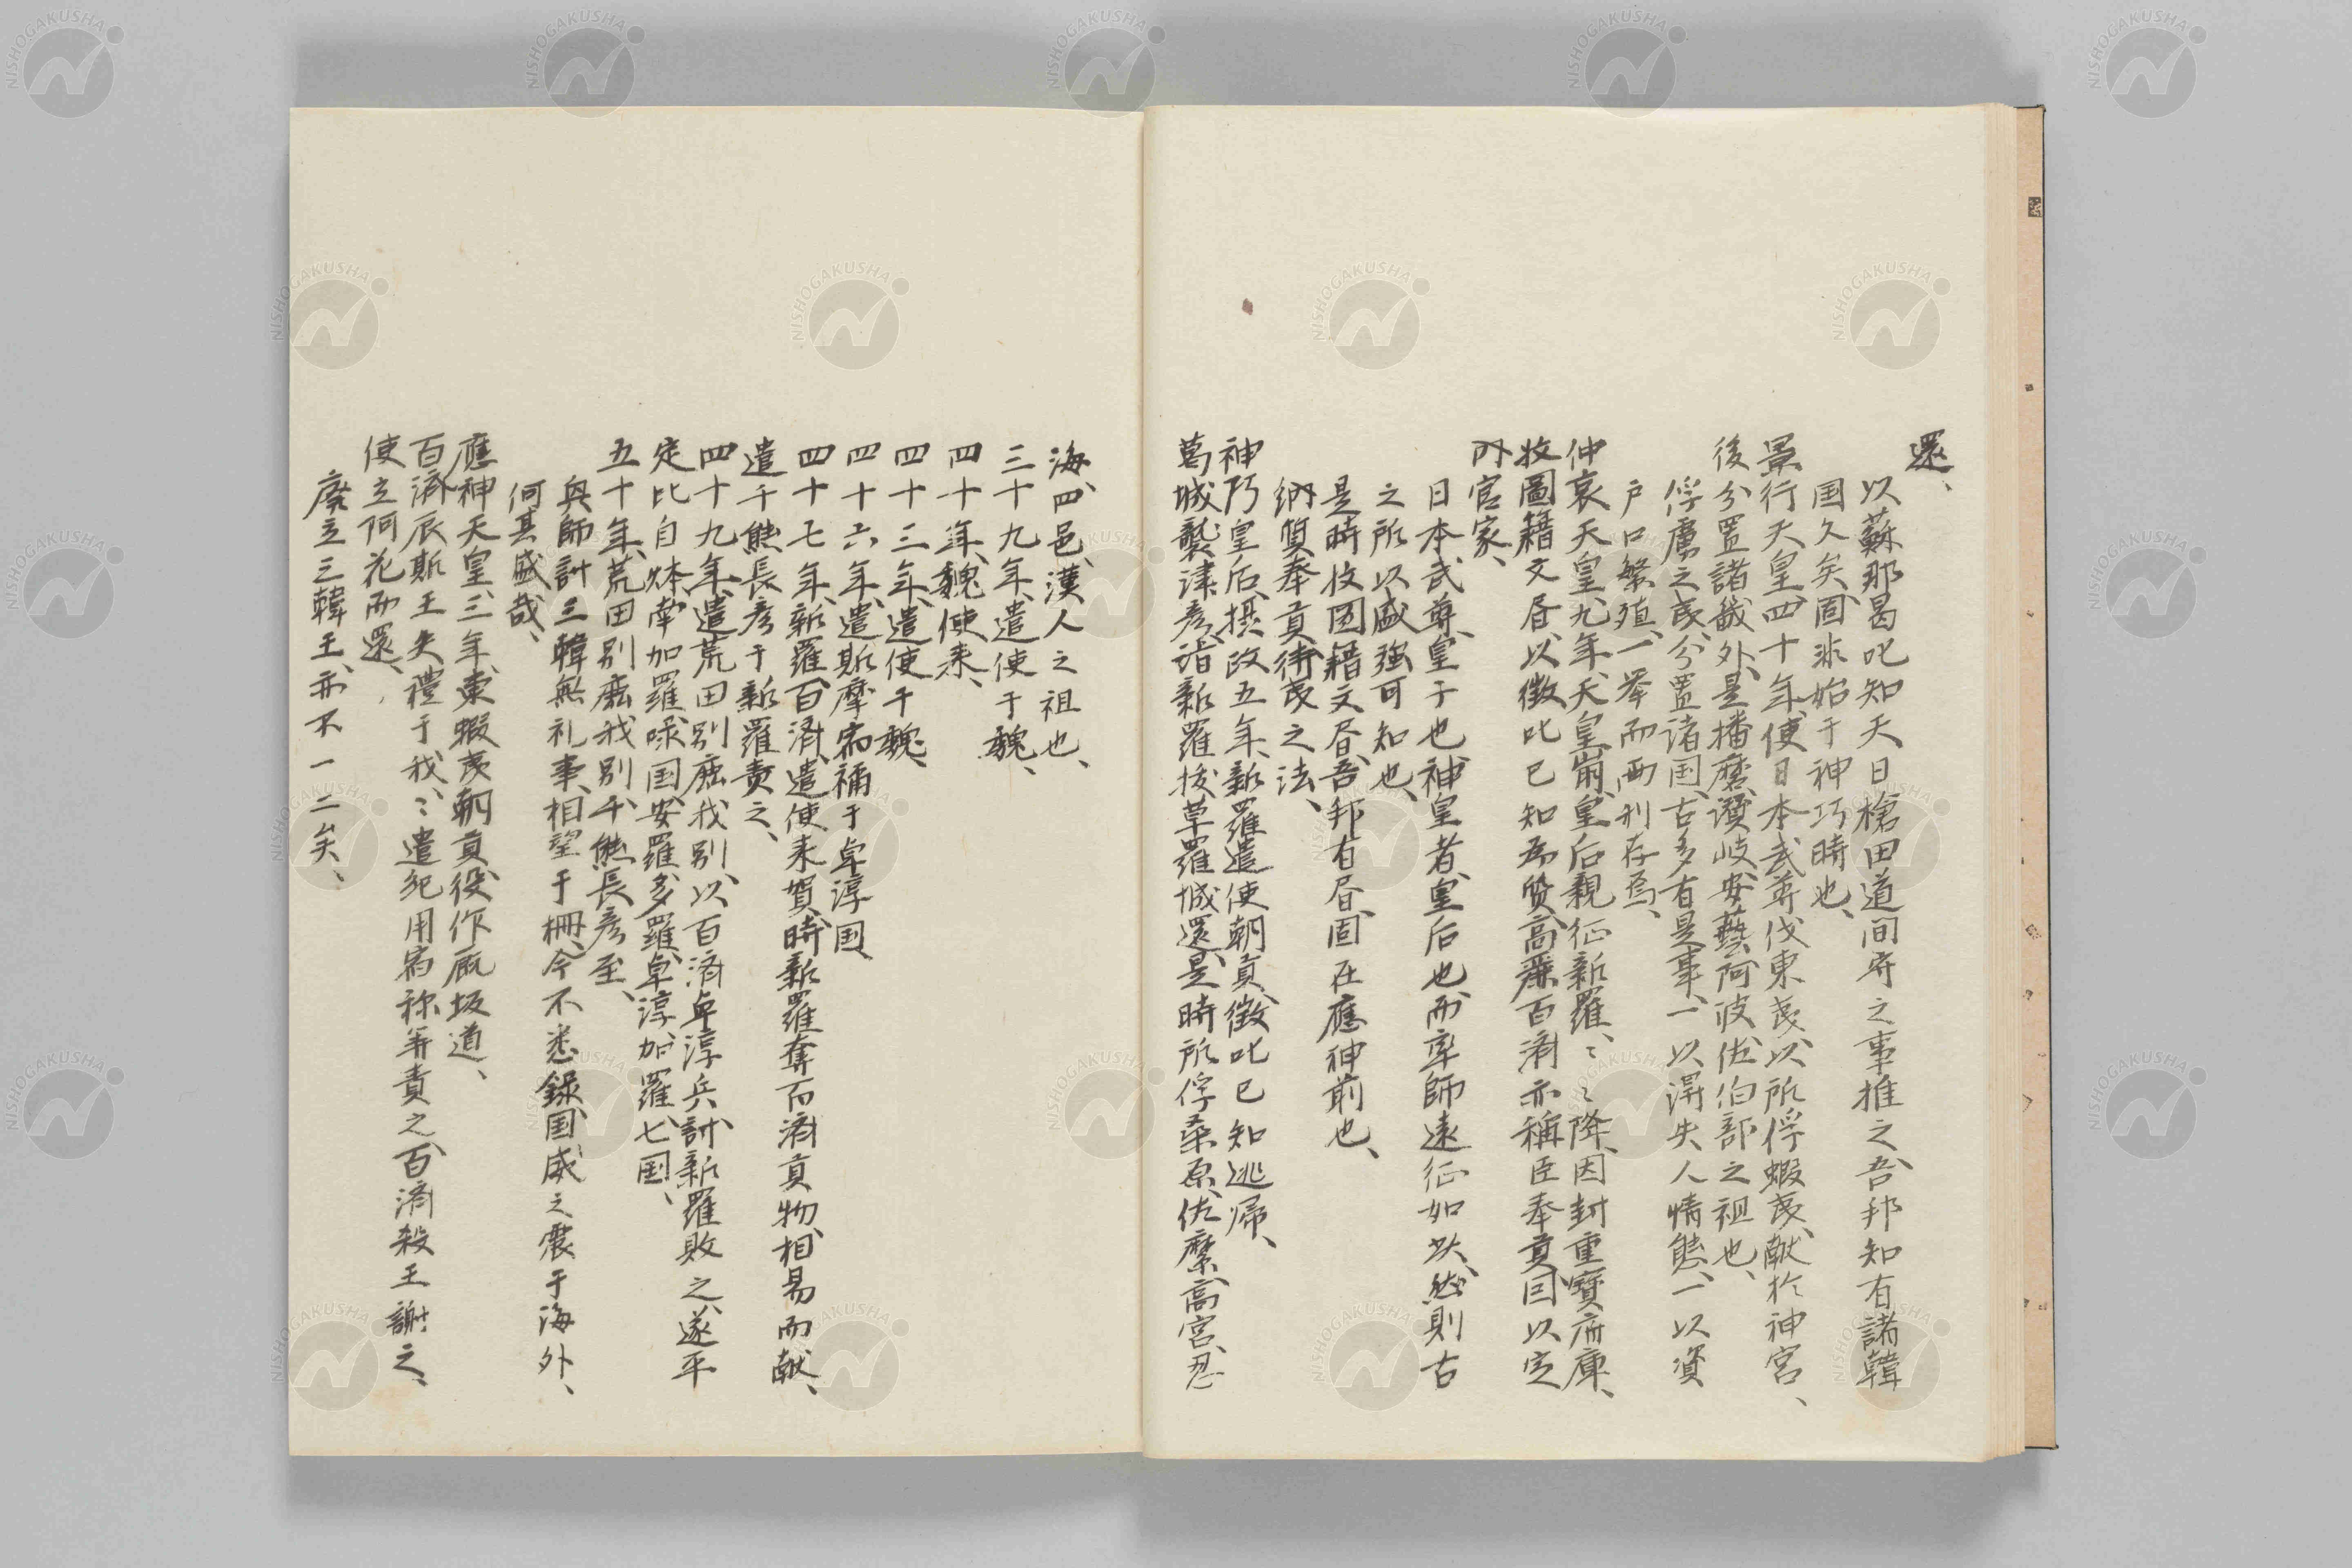 還、
以蘇那曷叱知天日槍田道間守之事推之、吾邦知有諸韓
国久矣、固非始于神功時也、
景行天皇、四十年、使日本武尊伐東夷、以所俘蝦夷、献於神宮、
後分置諸畿外、是播磨、讃岐、安藝、阿波、佐伯部之祖也、
俘虜之夷、分置諸国、古多有是事、一以得失人情態、一以資
戸口繁殖、一挙而両利存焉、
仲哀天皇、九年、天皇崩、皇后親征新羅、〻〻降、因封重寶府庫、
收圖籍文書、以徴叱己知為質、高麗百濟亦稱臣奉貢、因以定
内官家、
日本武尊、皇子也、神皇者、皇后也、而率師遠征如此、然則古
之所以盛強可知也、
是時收図籍文書、吾邦有書、固在應神前也、
納質奉貢、待夷之法、
神功皇后、摂政五年、新羅遣使朝貢、徴叱己知逃帰、
葛城襲津彦、詣新羅、抜草羅城還、是時所俘桑原、佐糜、高宮、忍
海、四邑、漢人之祖也、
三十九年、遣使于魏、
四十年、魏使来、
四十三年、遣使于魏、
四十六年、遣斯摩宿禰于卓淳国、
四十七年、新羅、百済、遣使来貢、時新羅奪百済貢物、相易而献、
遣千熊長彦于新羅責之、
四十九年、遣荒田別鹿我別、以百済卓淳兵、討新羅敗之、遂平
定比自㶱南加羅㖨国、安羅、多羅、卓淳、加羅、七国、
五十年、荒田別鹿我別、千熊長彦至、
興師討三韓無礼事、相望于冊、今不悉録、国威之震于海外、
何其盛哉、
應神天皇、三年、東蝦夷朝貢、役作厩坂道、
百済辰斯王失禮于我、〻遣紀角宿祢等責之、百済殺王謝之、
使立阿花而還、
廃立三韓王、亦不一二矣、